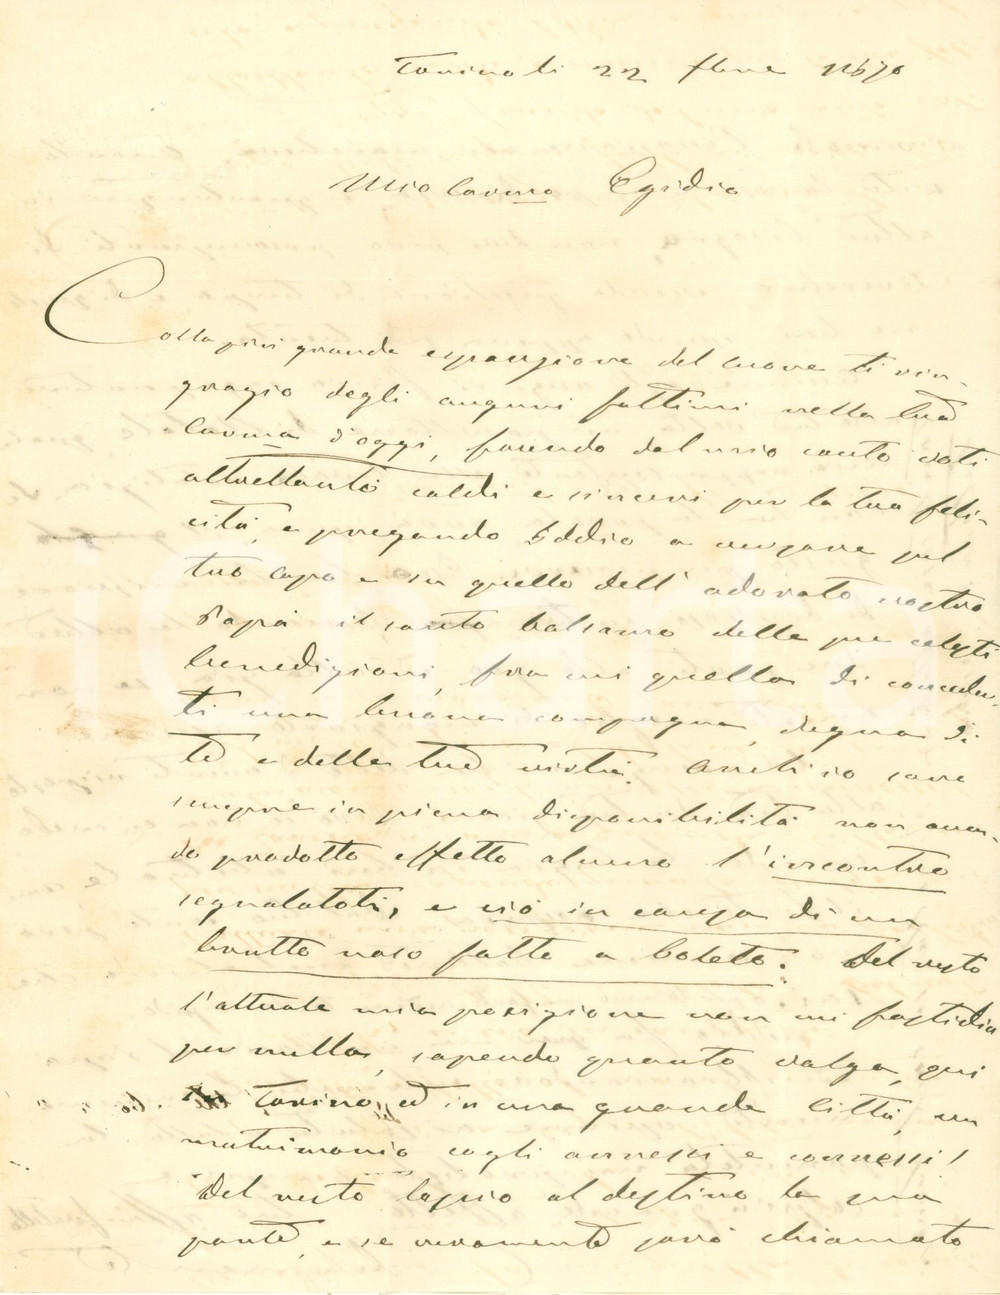 Torino li 22 1870
Mio Carmo Egidio
Colla più grande espansione del cuore ti rin-
grazio degli augurii fattimi nella tua
carma d'oggi, facendo dal mio canto voti
altrettanto caldi e sinceri per la tua feli-
cità, e pregando Iddio a versare sul
tuo capo e su quello dell' adorato nostro
Papà il santo balsamo delle più celesti
benedizioni, fra cui quella di conceder-
ti una buona compagna, degna di
te e della tua virtù. Anch'io sono
sempre in piena disponibilità non aven-
do prodotto effetto alcuno l'incontro
segnalatoti, e ciò in causa di un
brutto naso fatto a boleto. Del resto
l'attuale mia posizione non mi fastidia
per nulla, sapendo quanto valga, qui
in Torino, ed in una grande città, un
matrimonio cogli annessi e connessi!
Del resto lascio al destino la sua
parte, e se veramente sarò chiamato
iCharta